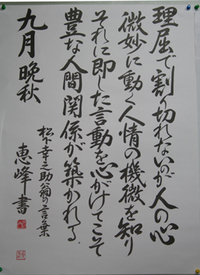 理屈で割り切れないのが人の心
微妙に動く人情の機微を知り
それに即した言動を心がけてこそ
豊かな人間関係が築かれる
九月 晩秋
松下幸之助翁の言葉
恵峰書